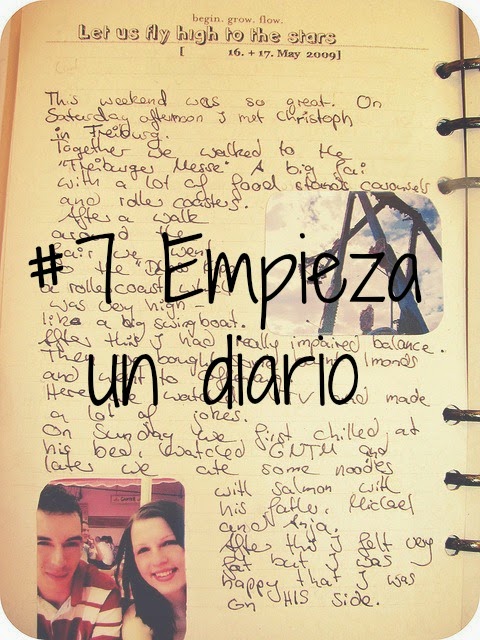 begin. grow. flow.
Let us fly high to the stars
[ 16. + 17. May 2009]
This weekend was so great. On
Saturday afternoon I met Christoph
in Freiburg.
Together we walked to the
"Freiburger Messe". A big fair
with a lot of food stands, carousels
and roller coasters.
After a walk
around the
fair we went
to the
a rollercoast
#7 Empieza
was very high -
like a big swingboat.
After this I had really impaired balance.
Then we bought
and went to
un diario
Here we watched TV and made
a lot of jokes.
On Sunday we first chilled at
his bed, watched GNTM and
later we ate some noodles
with salmon with
his father, Michael
and Anja.
After this I felt very
fat but I was
happy that I was
on HIS side.